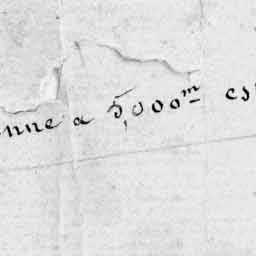 nne a 5,000m es